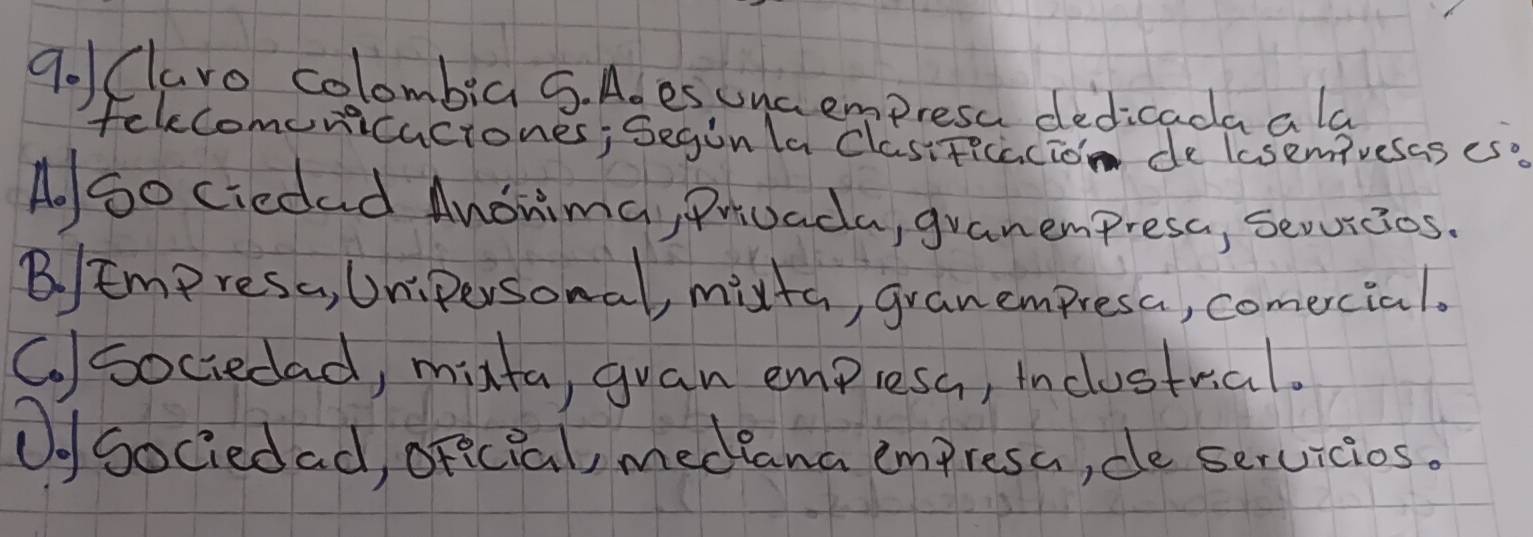 9.) Claro colombia S.A. es una empresa dedicada a la
telecomunicaciones; Según la Clasificación de las empresas es:
A.) Sociedad Anónima, Privada, gran empresa, Servicios.
B.) Empresa, Unipersonal, mixta, gran empresa, comercial.
C.) Sociedad, mixta, gran empresa, industrial.
D.) Sociedad, oficial, mediana empresa, de servicios.